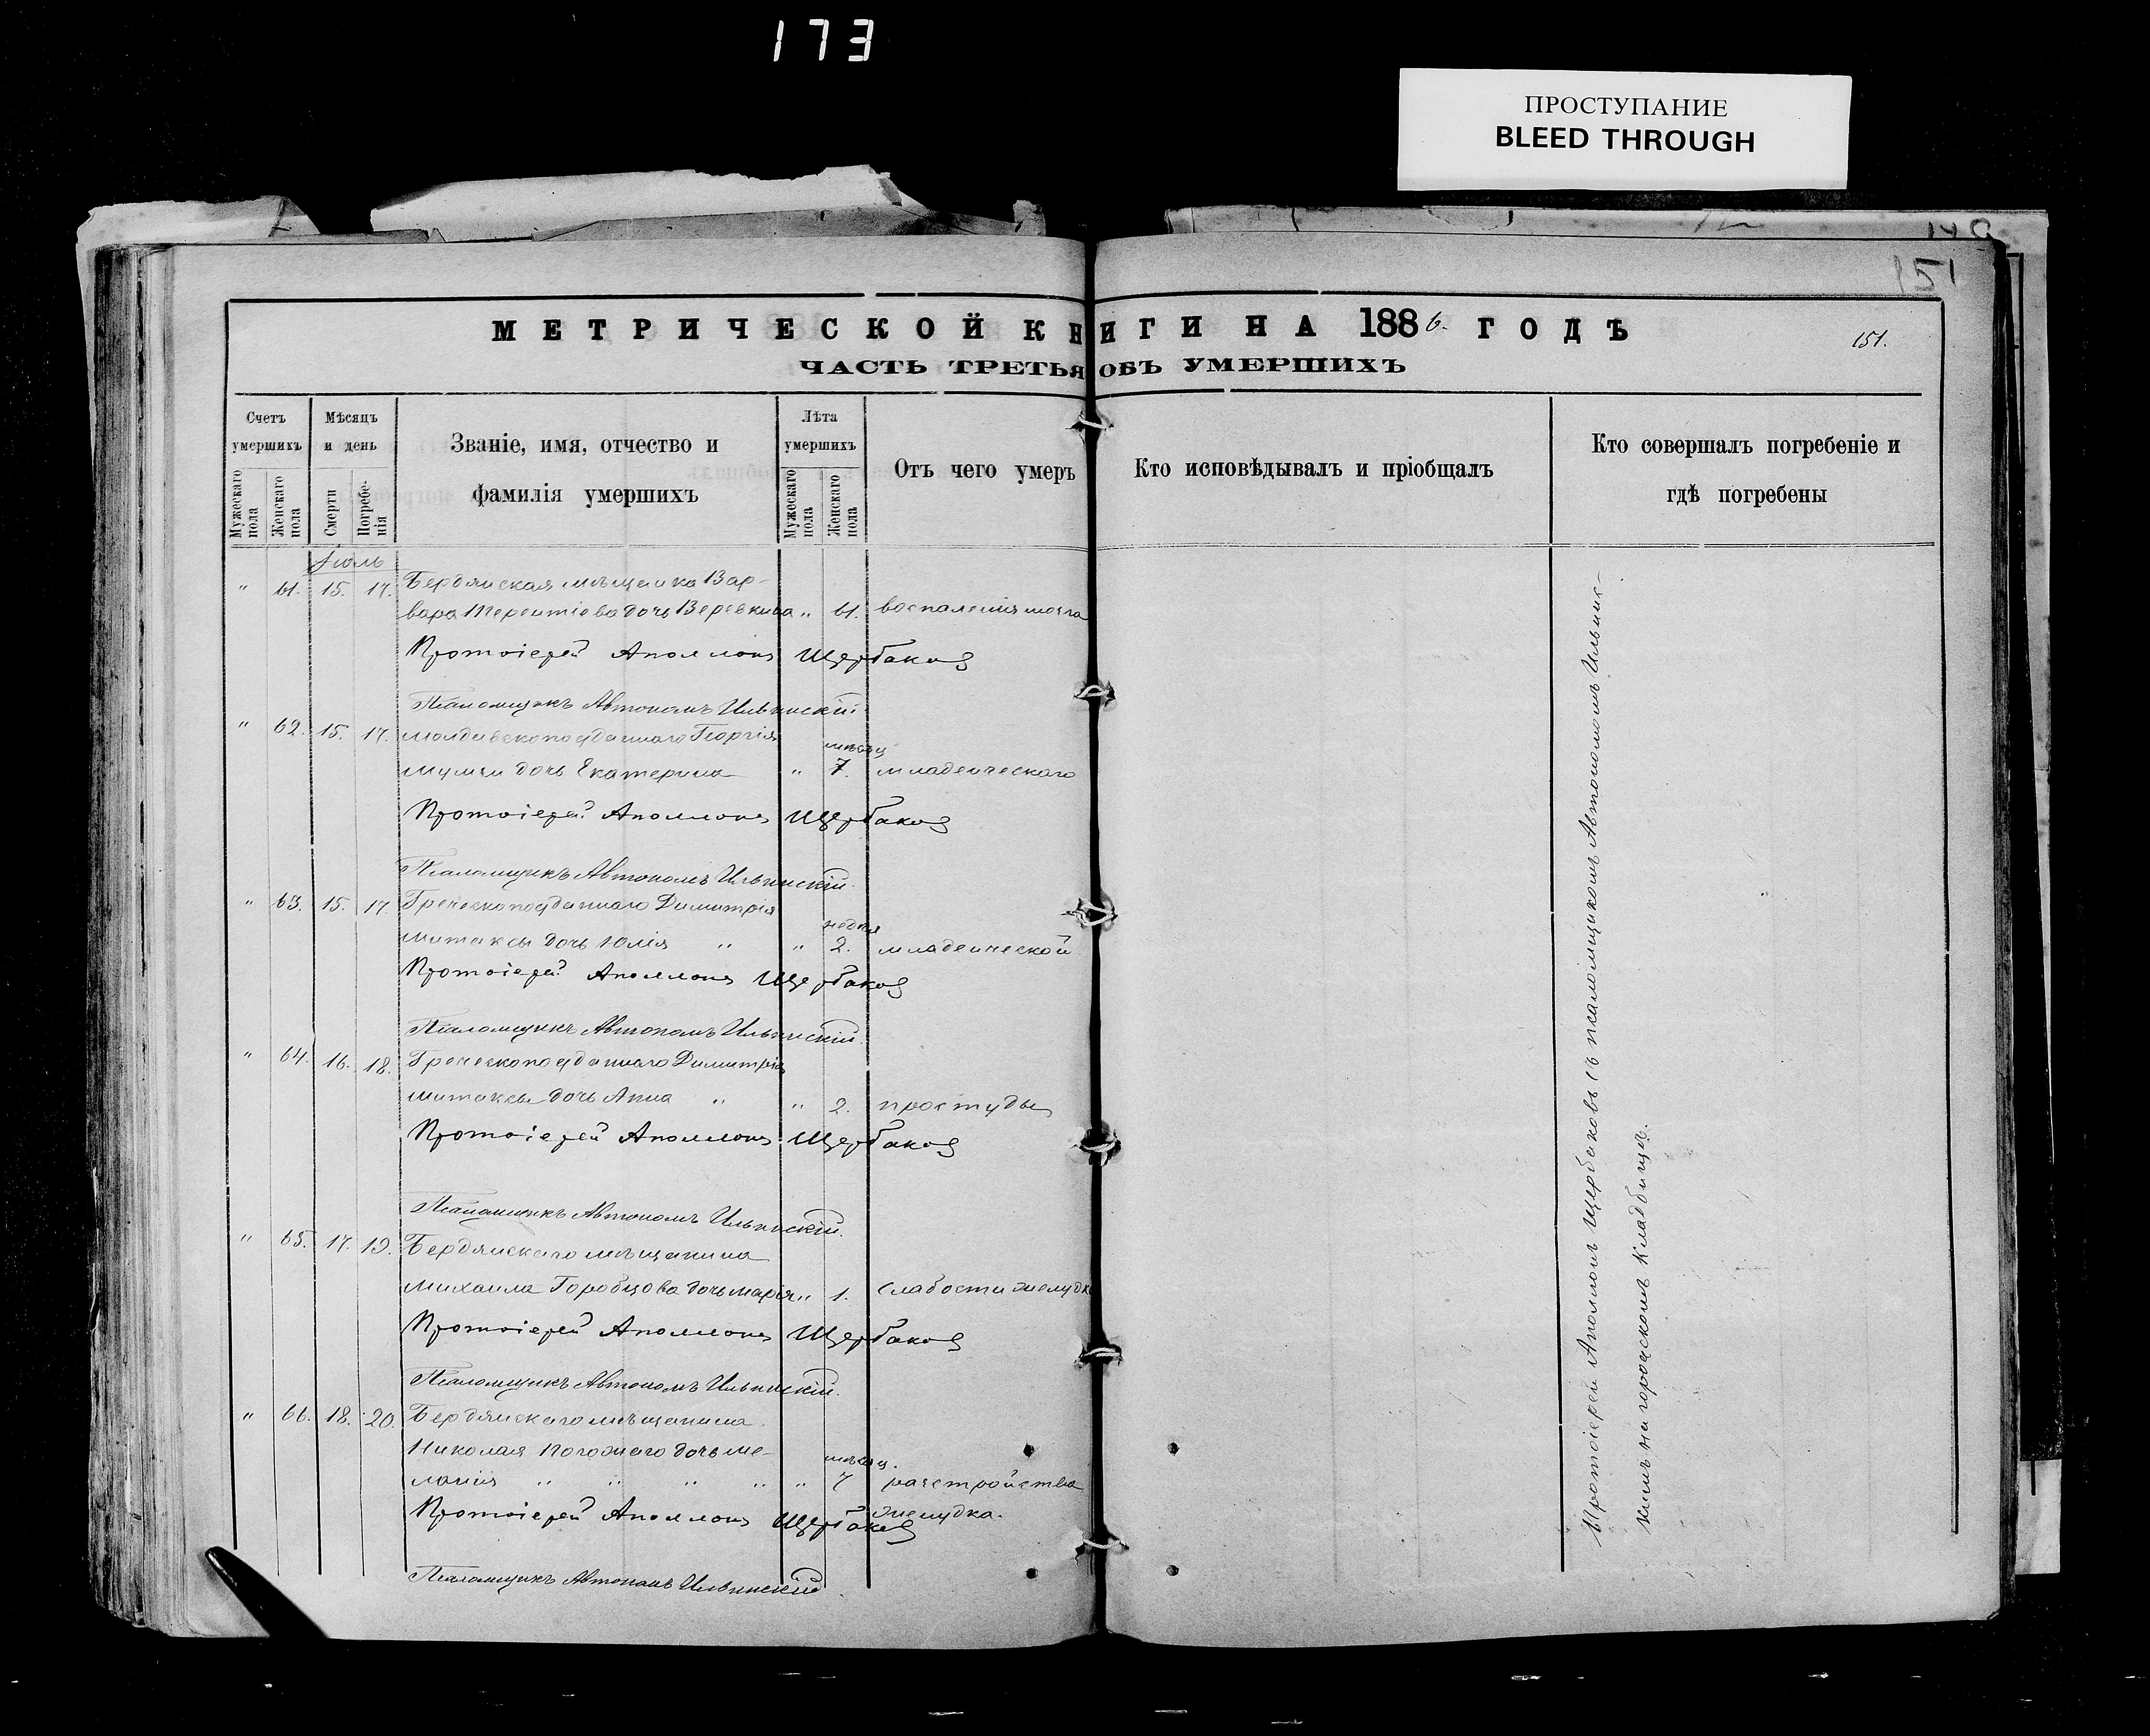 173
ПРОСТУПАНИЕ
BLEED THROUGH
151
МЕТРИЧЕСКОЙ КНИГИ НА 1886. ГОДЪ
151.
ЧАСТЬ ТРЕТЬЯ ОБЪ УМЕРШИХЪ
Счетъ умершихъ
Мужескаго пола
Женскаго пола
Мѣсяцъ и день
Смерти
Погребенія
Званіе, имя, отчество и
фамилія умершихъ
Лѣта умершихъ
Мужескаго пола
Женскаго пола
Отъ чего умеръ
Кто исповѣдывалъ и пріобщалъ
Кто совершалъ погребеніе и
гдѣ погребены
Іюль
" 61. 15. 17. Бердянская мѣщанка Вар-
вара Терентіева дочь Веревкина " 61. воспаленія мозга
Протоіерей Аполлонъ Щербаковъ
Псаломщикъ Автономъ Ильинскій.
" 62. 15. 17. Молдавскоподданнаго Георгія
дочь Екатерина " мѣсяц 7. младенческаго
Протоіерей Аполлонъ Щербаковъ
Псаломщикъ Автономъ Ильинскій.
" 63. 15. 17. Греческоподданнаго Димитрія
Митаксы дочь Юлія " " недѣл 2. младенческой
Протоіерей Аполлонъ Щербаковъ
Псаломщикъ Автономъ Ильинскій.
" 64. 16. 18. Греческоподданнаго Димитрія
Митаксы дочь Анна " " 2. простуды
Протоіерей Аполлонъ Щербаковъ
Псаломщикъ Автономъ Ильинскій.
" 65. 17. 19. Бердянскаго мѣщанина
Михаила Горобцова дочь Марія " 1. слабости желудка
Протоіерей Аполлонъ Щербаковъ
Псаломщикъ Автономъ Ильинскій.
" 66. 18. 20. Бердянскаго мѣщанина
Николая Погожаго дочь Ме-
ланія " " " " " мѣсяц. 7 разстройства
желудка.
Протоіерей Аполлонъ Щербаковъ
Псаломщикъ Автономъ Ильинскій
Протоіерей Аполонъ Щербаковъ съ псаломщикомъ Автономомъ Ильинс-
кимъ на городскомъ кладбищѣ.